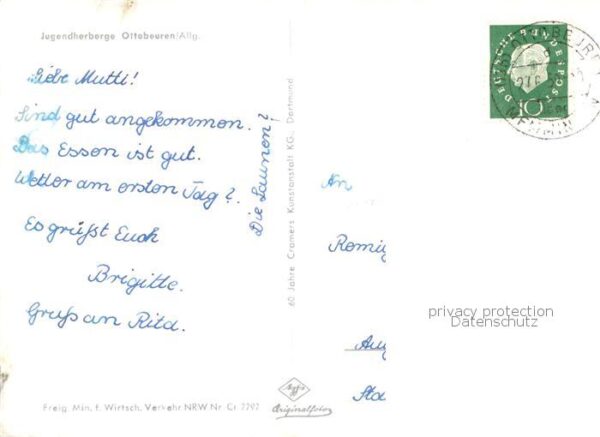 Jugendherberge Ottobeuren/Allg.
Liebe Mutti!
Sind gut angekommen.
Das Essen ist gut.
Wetter am ersten Tag?
Die Launen?
Es grüßt Euch
Brigitte.
Gruß an Rita.
Freig. Min. f. Wirtsch. Verkehr NRW Nr. Cr. 2292
60 Jahre Cramers Kunstanstalt KG, Dortmund
Agfa
Originalfoto
DEUTSCHE BUNDESPOST
10
An
Romig
privacy protection
Datenschutz